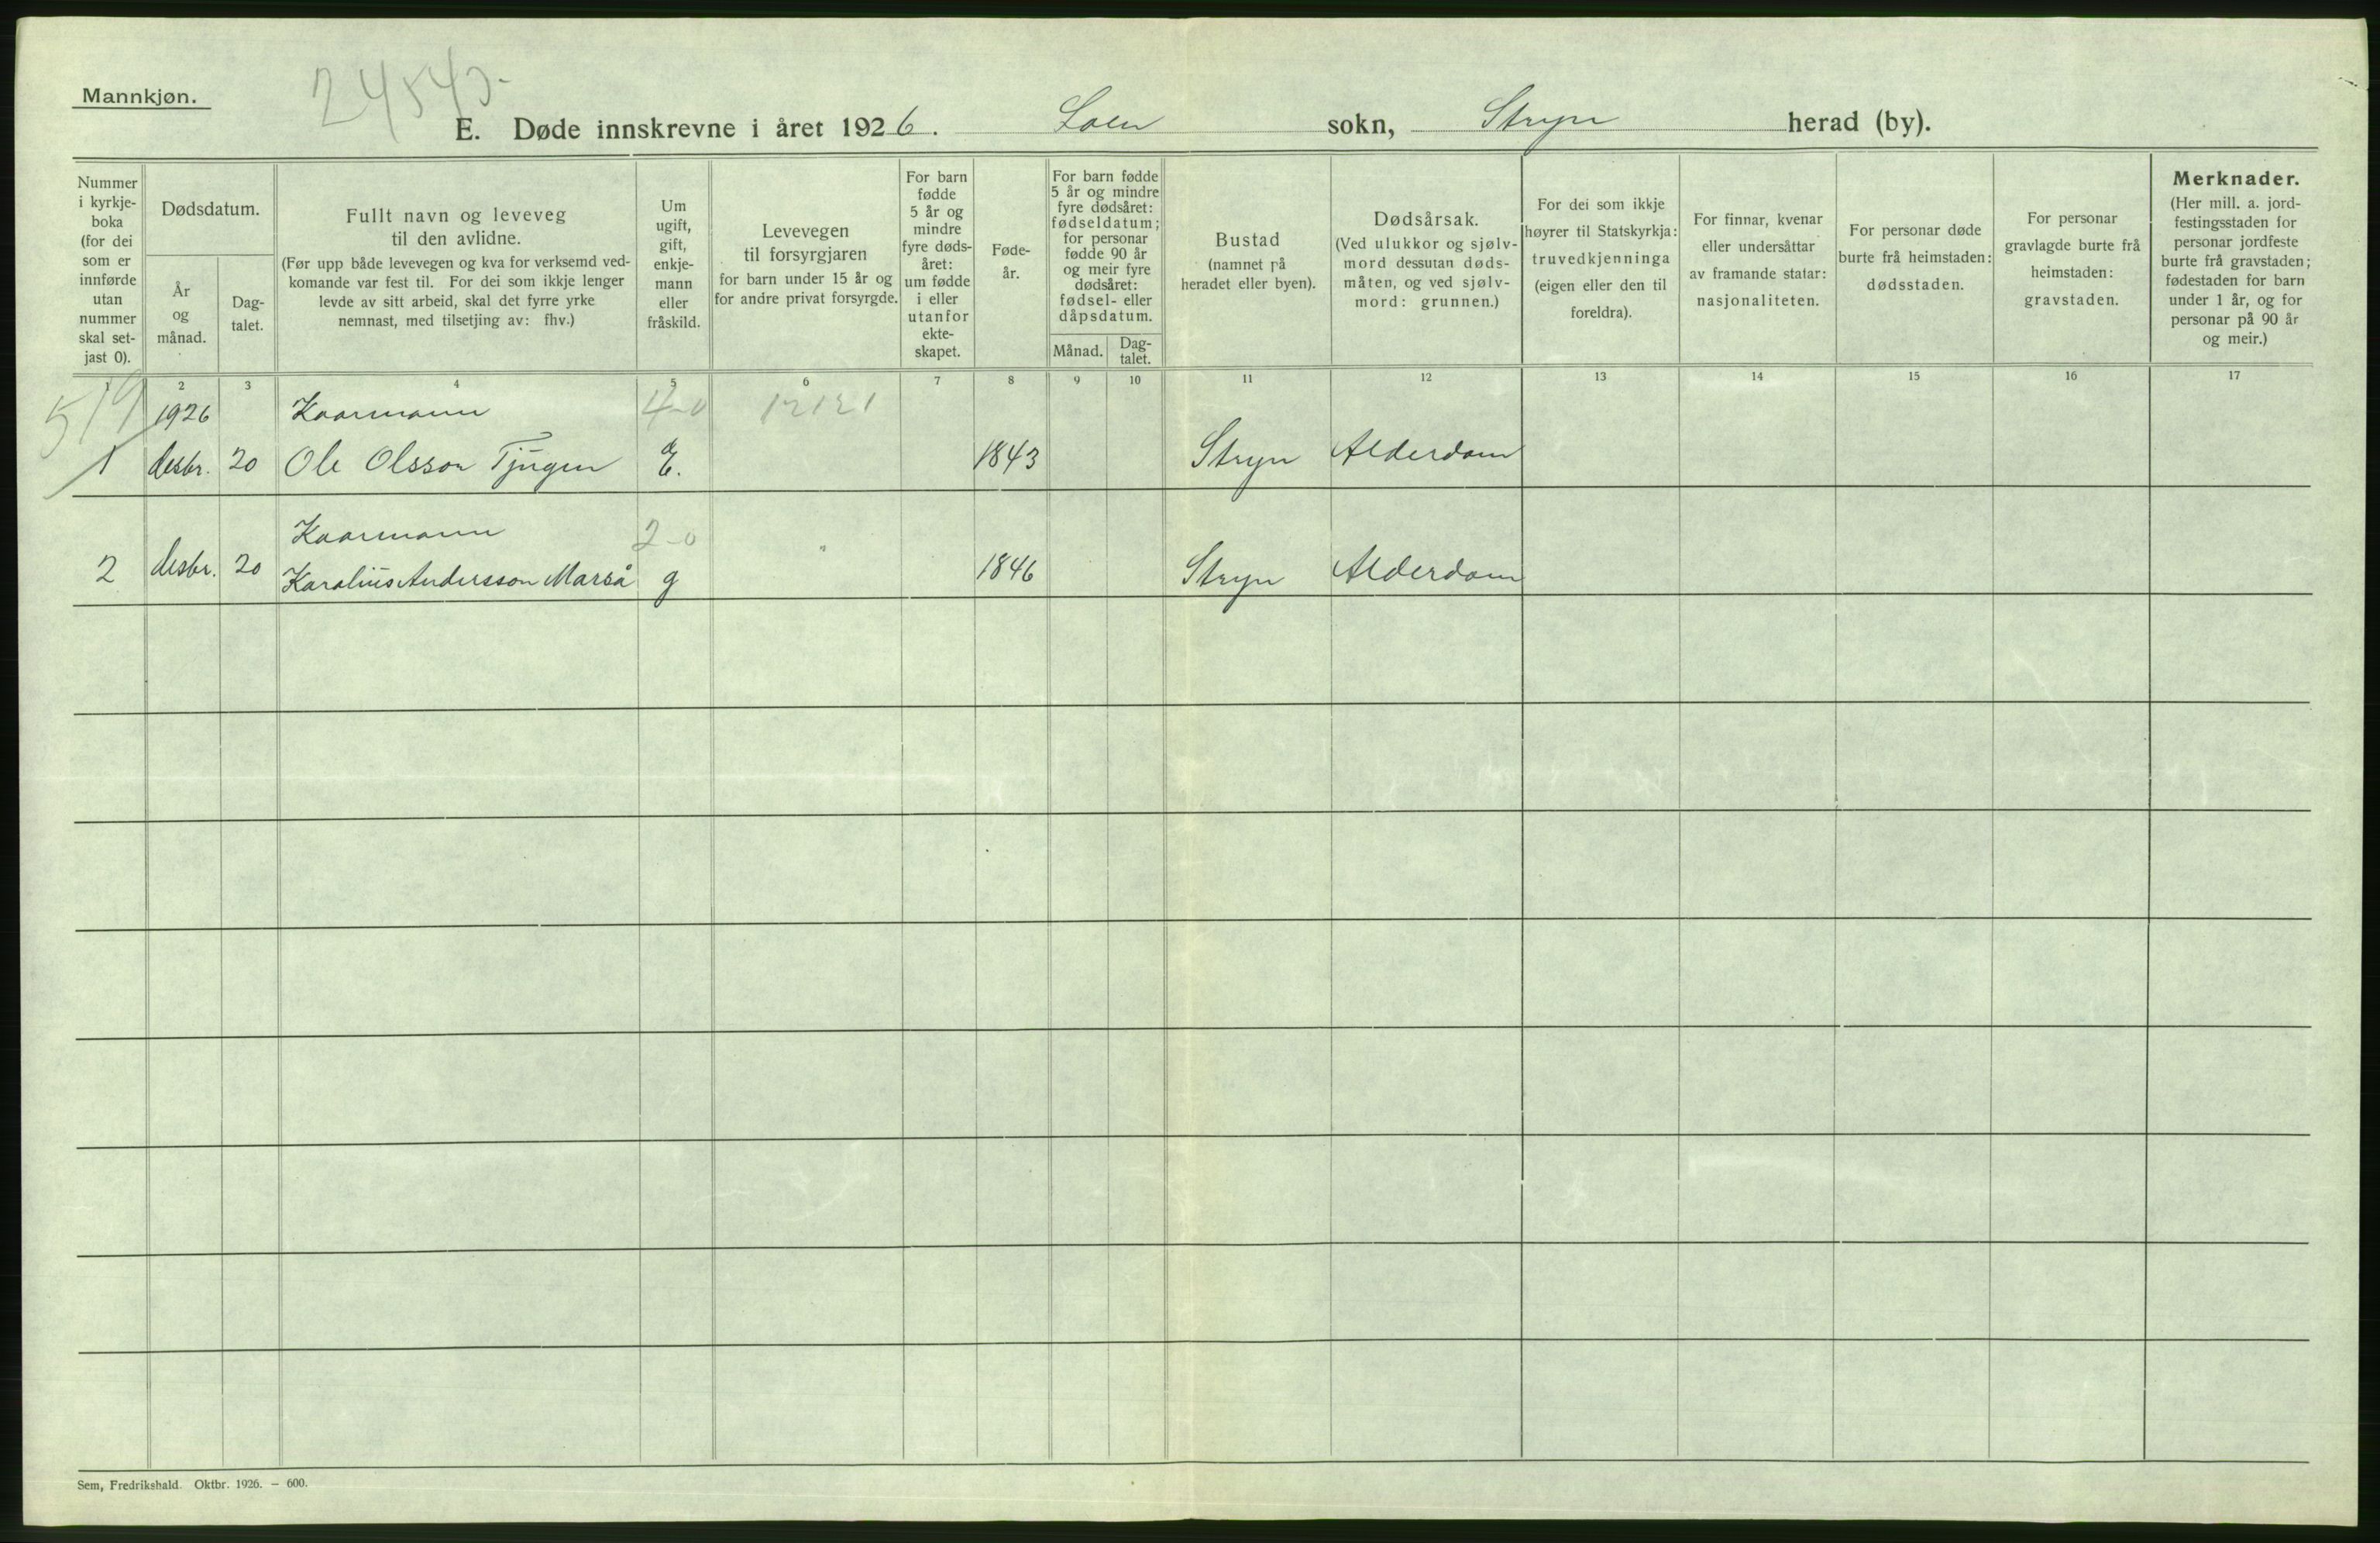 Mannkjøn.
24543-
E. Døde innskrevne i året 1926. Loen sokn, Stryn herad (by).
Nummer
i kyrkje-
boka
(for dei
som er
innførde
utan
nummer
skal set-
jast 0).
Dødsdatum.
År
og
månad.
Dag-
talet.
Fullt navn og leveveg
til den avlidne.
(Før upp både levevegen og kva for verksemd ved-
komande var fest til. For dei som ikkje lenger
levde av sitt arbeid, skal det fyrre yrke
nemnast, med tilsetjing av: fhv.)
Um
ugift,
gift,
enkje-
mann
eller
fråskild.
Levevegen
til forsyrgjaren
for barn under 15 år og
for andre privat forsyrgde.
For barn
fødde
5 år og
mindre
fyre døds-
året:
um fødde
i eller
utanfor
ekte-
skapet.
Føde-
år.
For barn fødde
5 år og mindre
fyre dødsåret:
fødseldatum;
for personar
fødde 90 år
og meir fyre
dødsåret:
fødsel- eller
dåpsdatum.
Månad.
Dag-
talet.
Bustad
(namnet på
heradet eller byen).
Dødsårsak.
(Ved ulukkor og sjølv-
mord dessutan døds-
måten, og ved sjølv-
mord: grunnen.)
For dei som ikkje
høyrer til Statskyrkja:
truvedkjenninga
(eigen eller den til
foreldra).
For finnar, kvenar
eller undersåttar
av framande statar:
nasjonaliteten.
For personar døde
burte frå heimstaden:
dødsstaden.
For personar
gravlagde burte frå
heimstaden:
gravstaden.
Merknader.
(Her mill. a. jord-
festingsstaden for
personar jordfeste
burte frå gravstaden;
fødestaden for barn
under 1 år, og for
personar på 90 år
og meir.)
1 2 3 4 5 6 7 8 9 10 11 12 13 14 15 16 17
519 1926 Kaarmann 4-0 12121
1 desbr. 20 Ole Olsson Tjugen E. 1843 Stryn Alderdom
Kaarmann 2-0 "
2 desbr. 20 Karolius Andersson Marså g 1846 Stryn Alderdom
Sem, Fredrikshald. Oktbr. 1926. — 600.